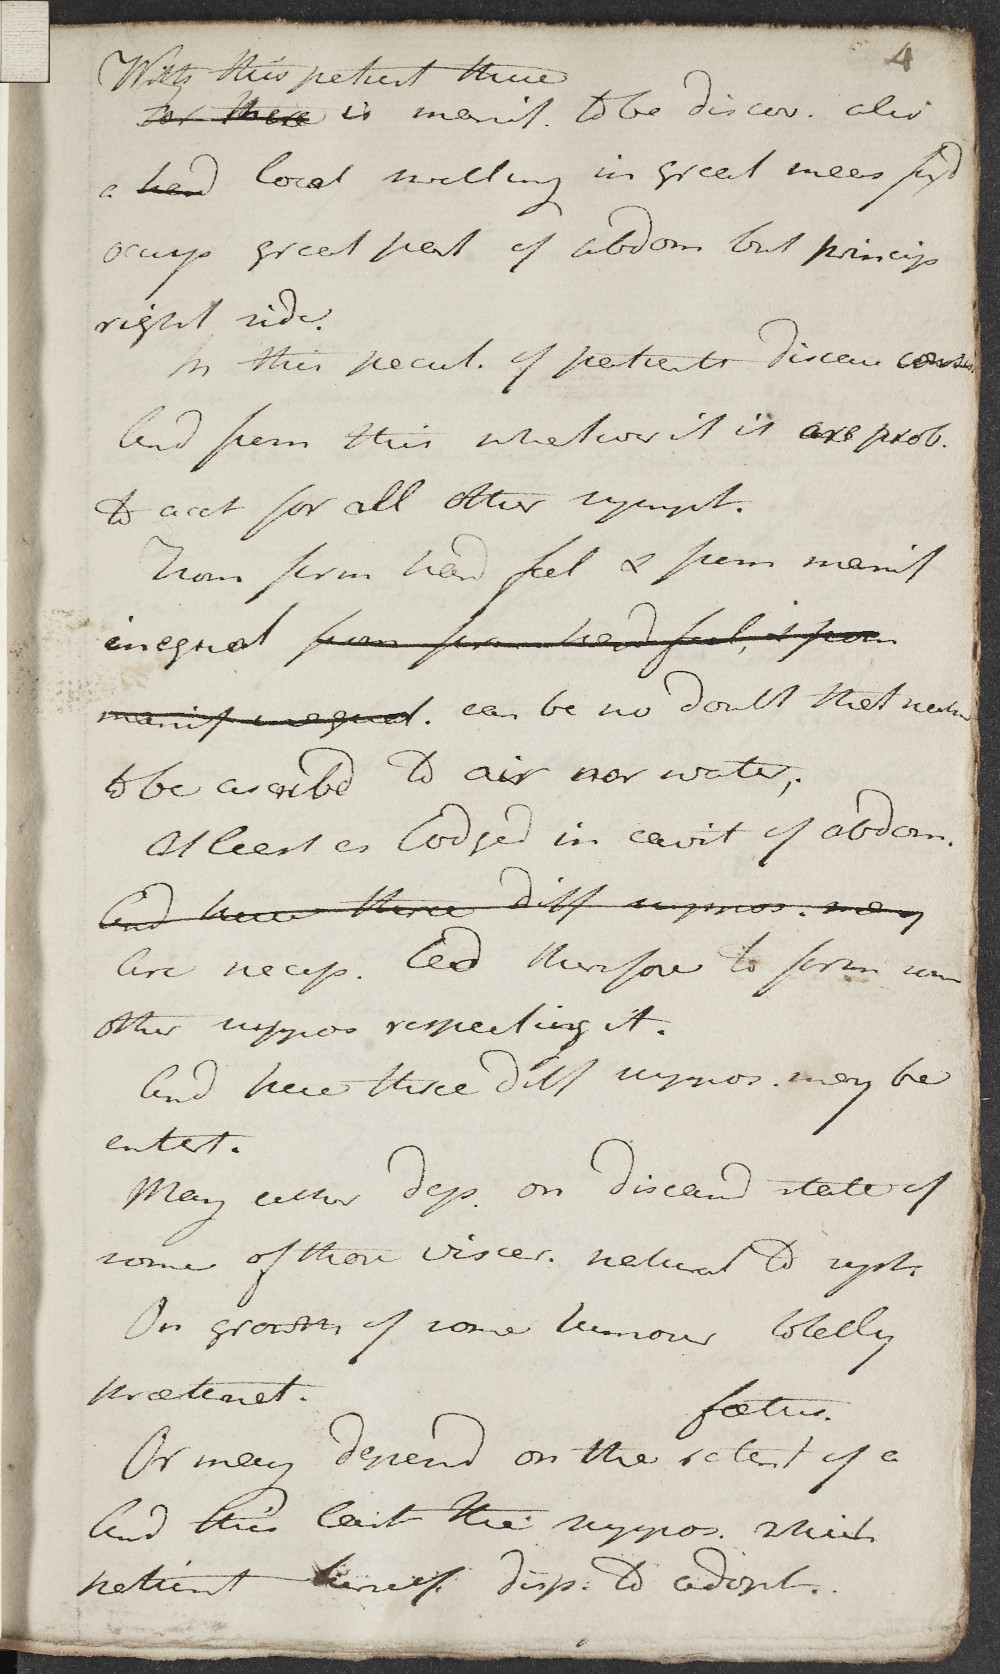 4
With this patient there
For there is manif. to be discov. also
a hard local swelling in great meas
occup great part of abdom but princip
right side.
In this pecul. of patients disease consis.
And from this whatever it is are prob.
to acct for all other sympt.
From firm hard feel & from manif
inequal from firm hard feel, & from
manif inequal. can be no doubt that neither
to be ascribd to air nor water,.
At least as lodged in cavit of abdom.
And here three diff suppos. may
Are necess. led therefore to form some
other suppos respecting it.
And here three diff suppos. may be
entert.
May either dep. on diseasd state of
some of those viscer. natural to syst.
On growth of some humour totally
præternat.
fœtus.
Or may depend on the retent of a
And this last the suppos. which
patient herself disp. to adopt.